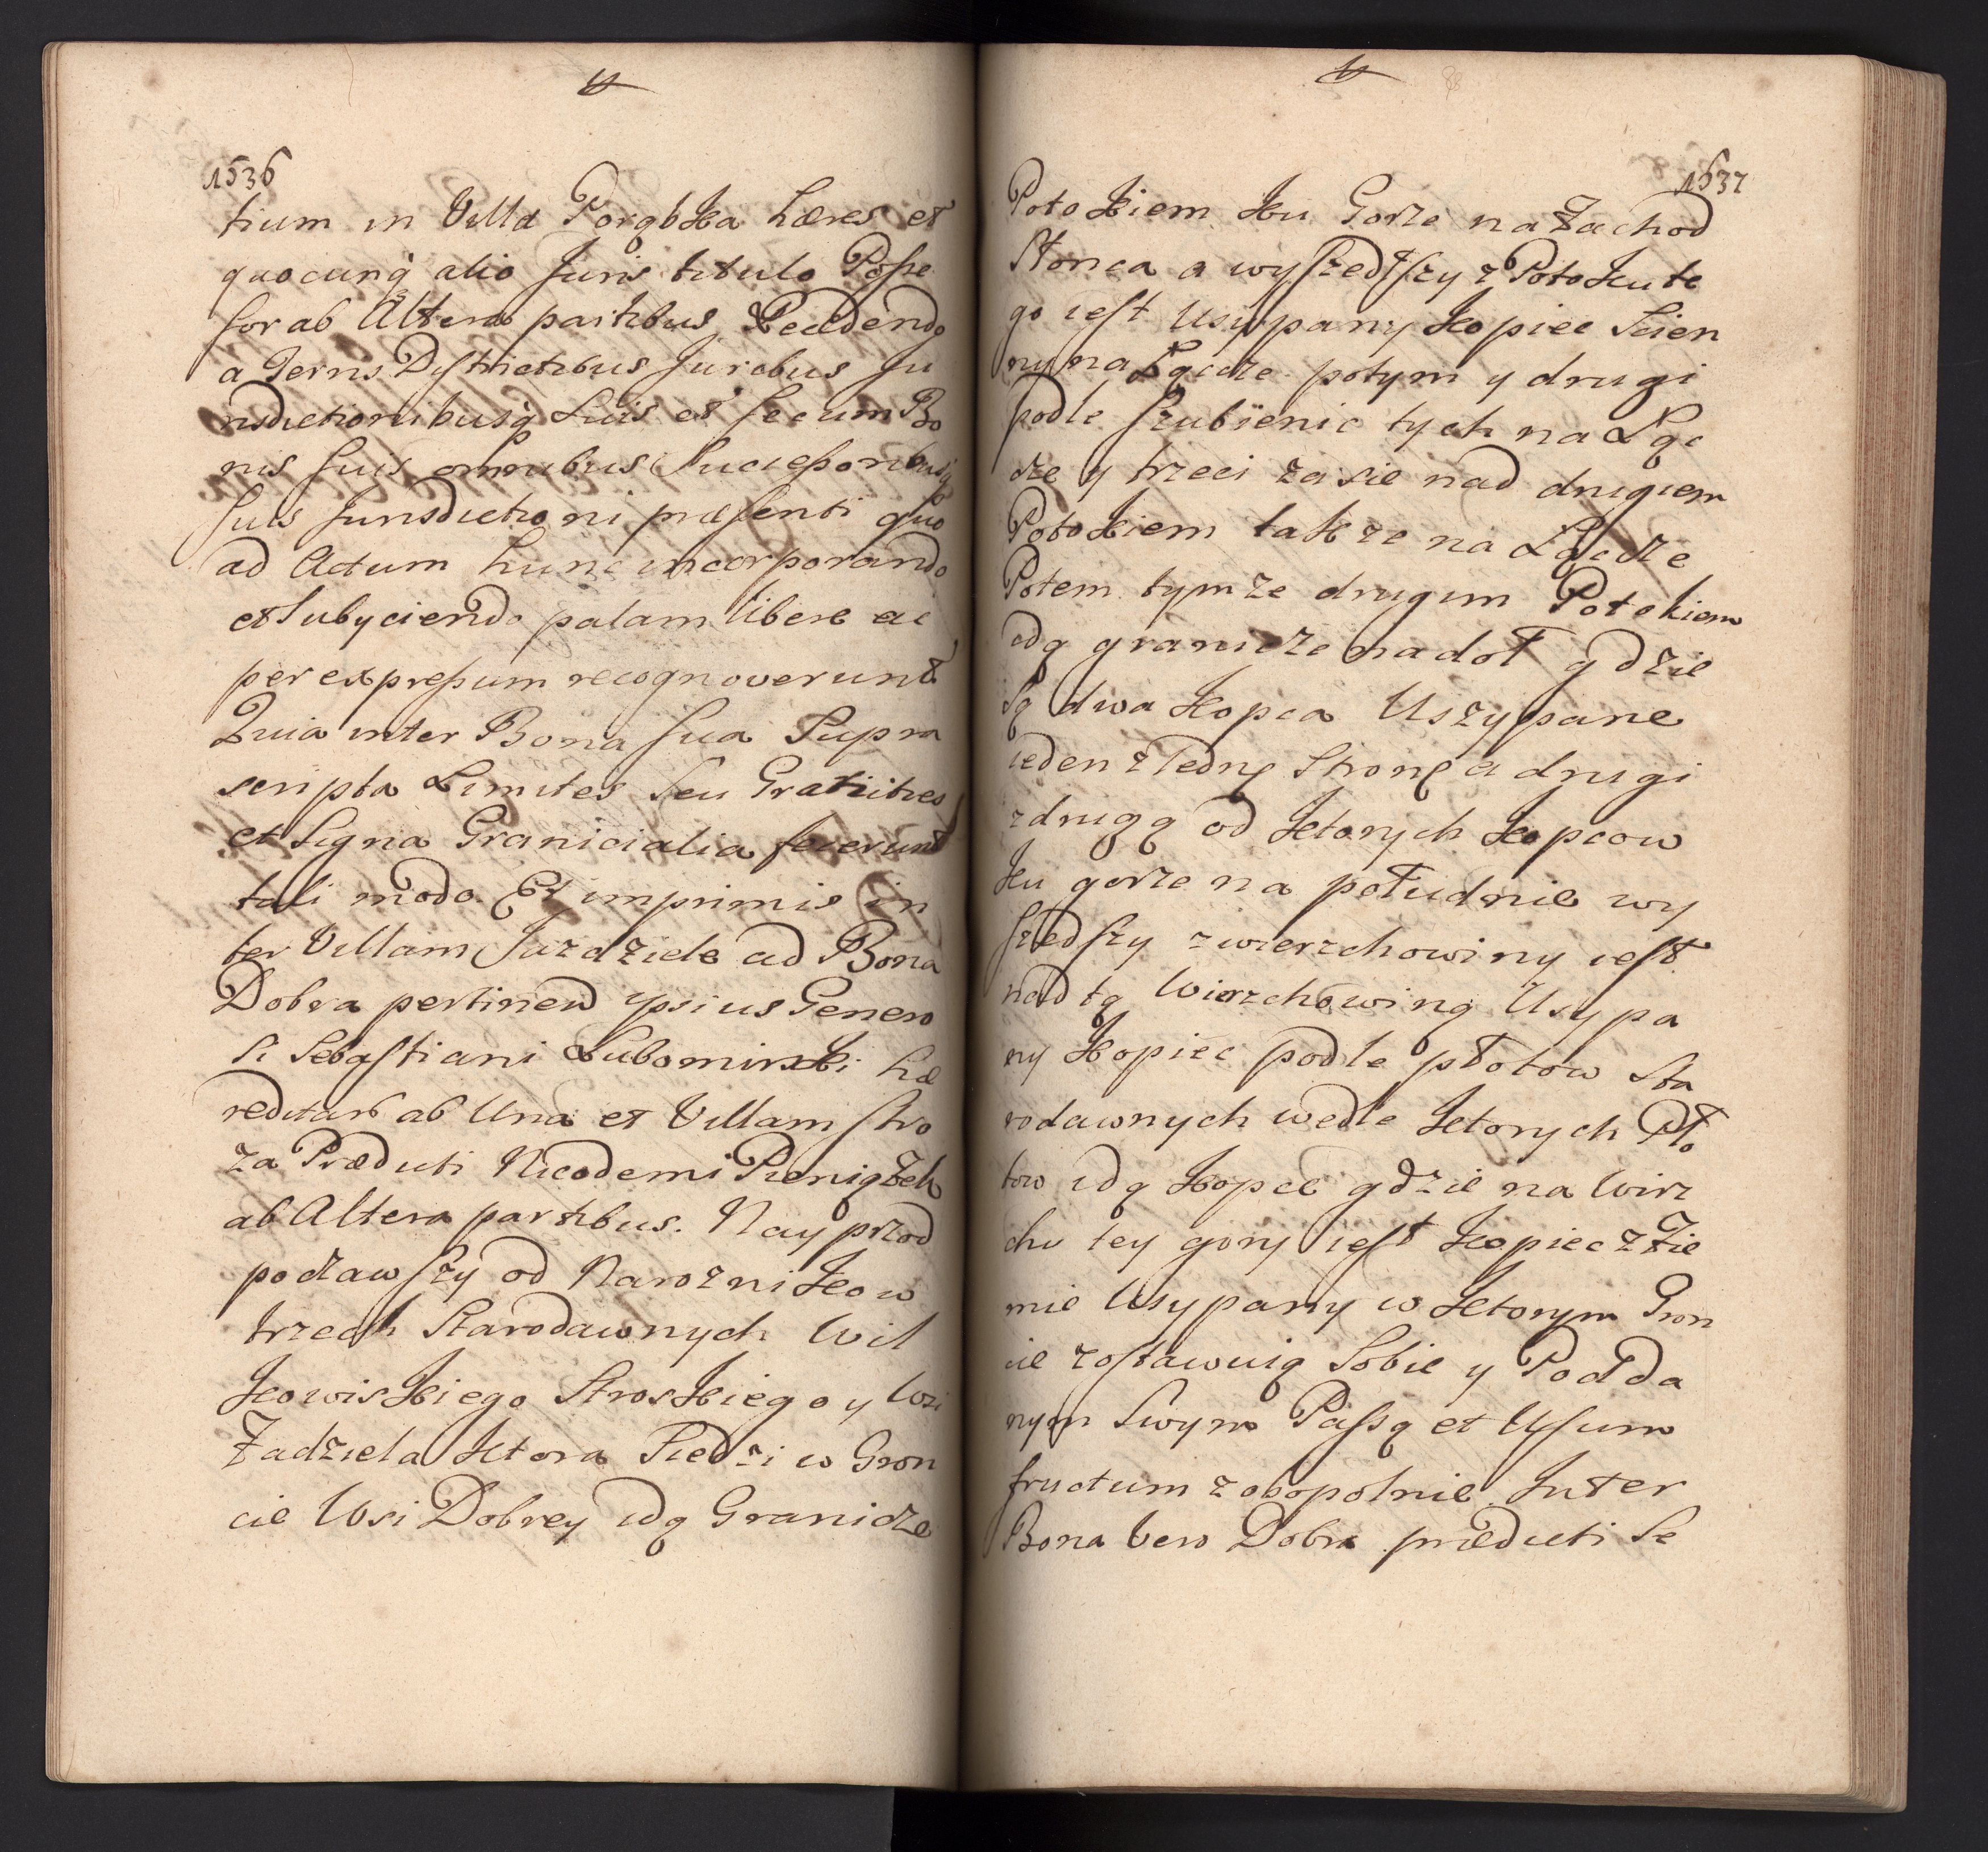 1536
tium in Villa Porąbka hæres et
quocunq alio Juris titulo Posse
sor ab Altera partibus Recedendo
a Terris Districtibus Juribus Ju
risdictionibusq Suis et secum Bo
nis suis omnibus Successoribusq
suis Jurisdictioni præsenti quo
ad Actum hunc incorporando
et Subyciendo palam libere ac
per expressum recognoverunt
Quia inter Bona sua Supra
scripta Limites seu Granities
et Signa Granicialia fecerunt
tali modo. Et imprimis in
ter Villam Jazdziele ad Bona
Dobra pertinen ypsius Genero
si Sebastiani Lubomirski hæ
reditarb ab Una et Villam Stro
za Prædicti Nicodemi Pieniązek
ab Altera partibus. Nay przod
poczawszy od Narozni kow
trzech Starodawnych Wil
kowiskiego Stroskiego y Wzi
Zadziela ktora Siedzi w Gron
cie Wsi Dobrey idą Granicze
1537
Potokiem ku Gorze na Zachod
Słonca a wyszedłszy z Potoku te
go iest Usuppany kopiec Scien
ny na Łącze potym y drugi
podle szubienic tych na Łąc
ze y trzeci zasie nad drugiem
Potokiem takze na Łącze
Potem tymze drugim Potokiem
idą granicze na doł gdzie
Są dwa kopca Uszypane
ieden z Iedny Strony a drugi
z drugą od ktorych kopcow
ku gorze na południe wy
szedszy zwierzchowiny iest
nad tą Wierzchowiną Usypa
ny kopiec podle płotow Sta
rodawnych wedle ktorych Pło
tow idą kopce gdzie na Wirz
chu tey gory iest kopiec z Zie
mie Usypany w ktorym Gron
cie zostawuią Sobie y Podda
nym Swym Passą et Usum
fructum zobopolnie. Inter
Bona vero Dobra prædicti Se